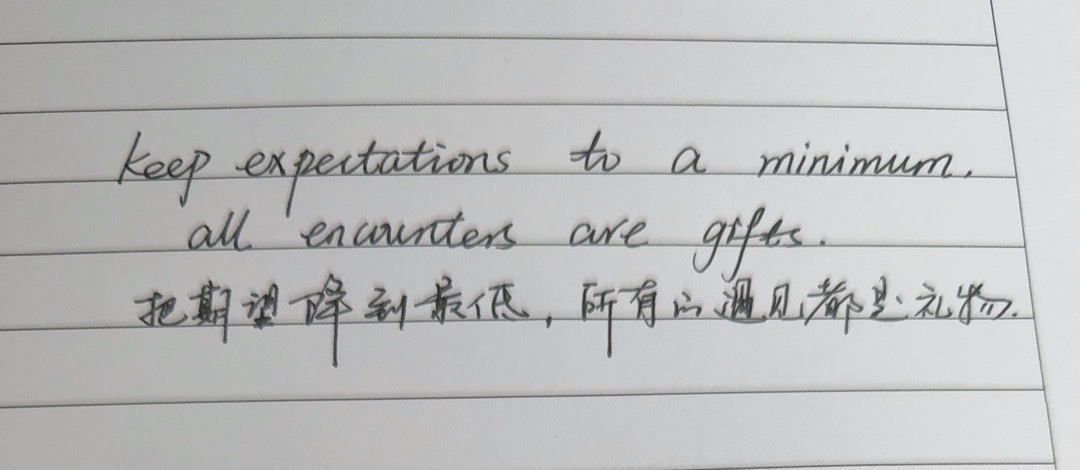 keep expectations to a minimum.
all encounters are gifts.
把期望降到最低,所有的遇见都是礼物.